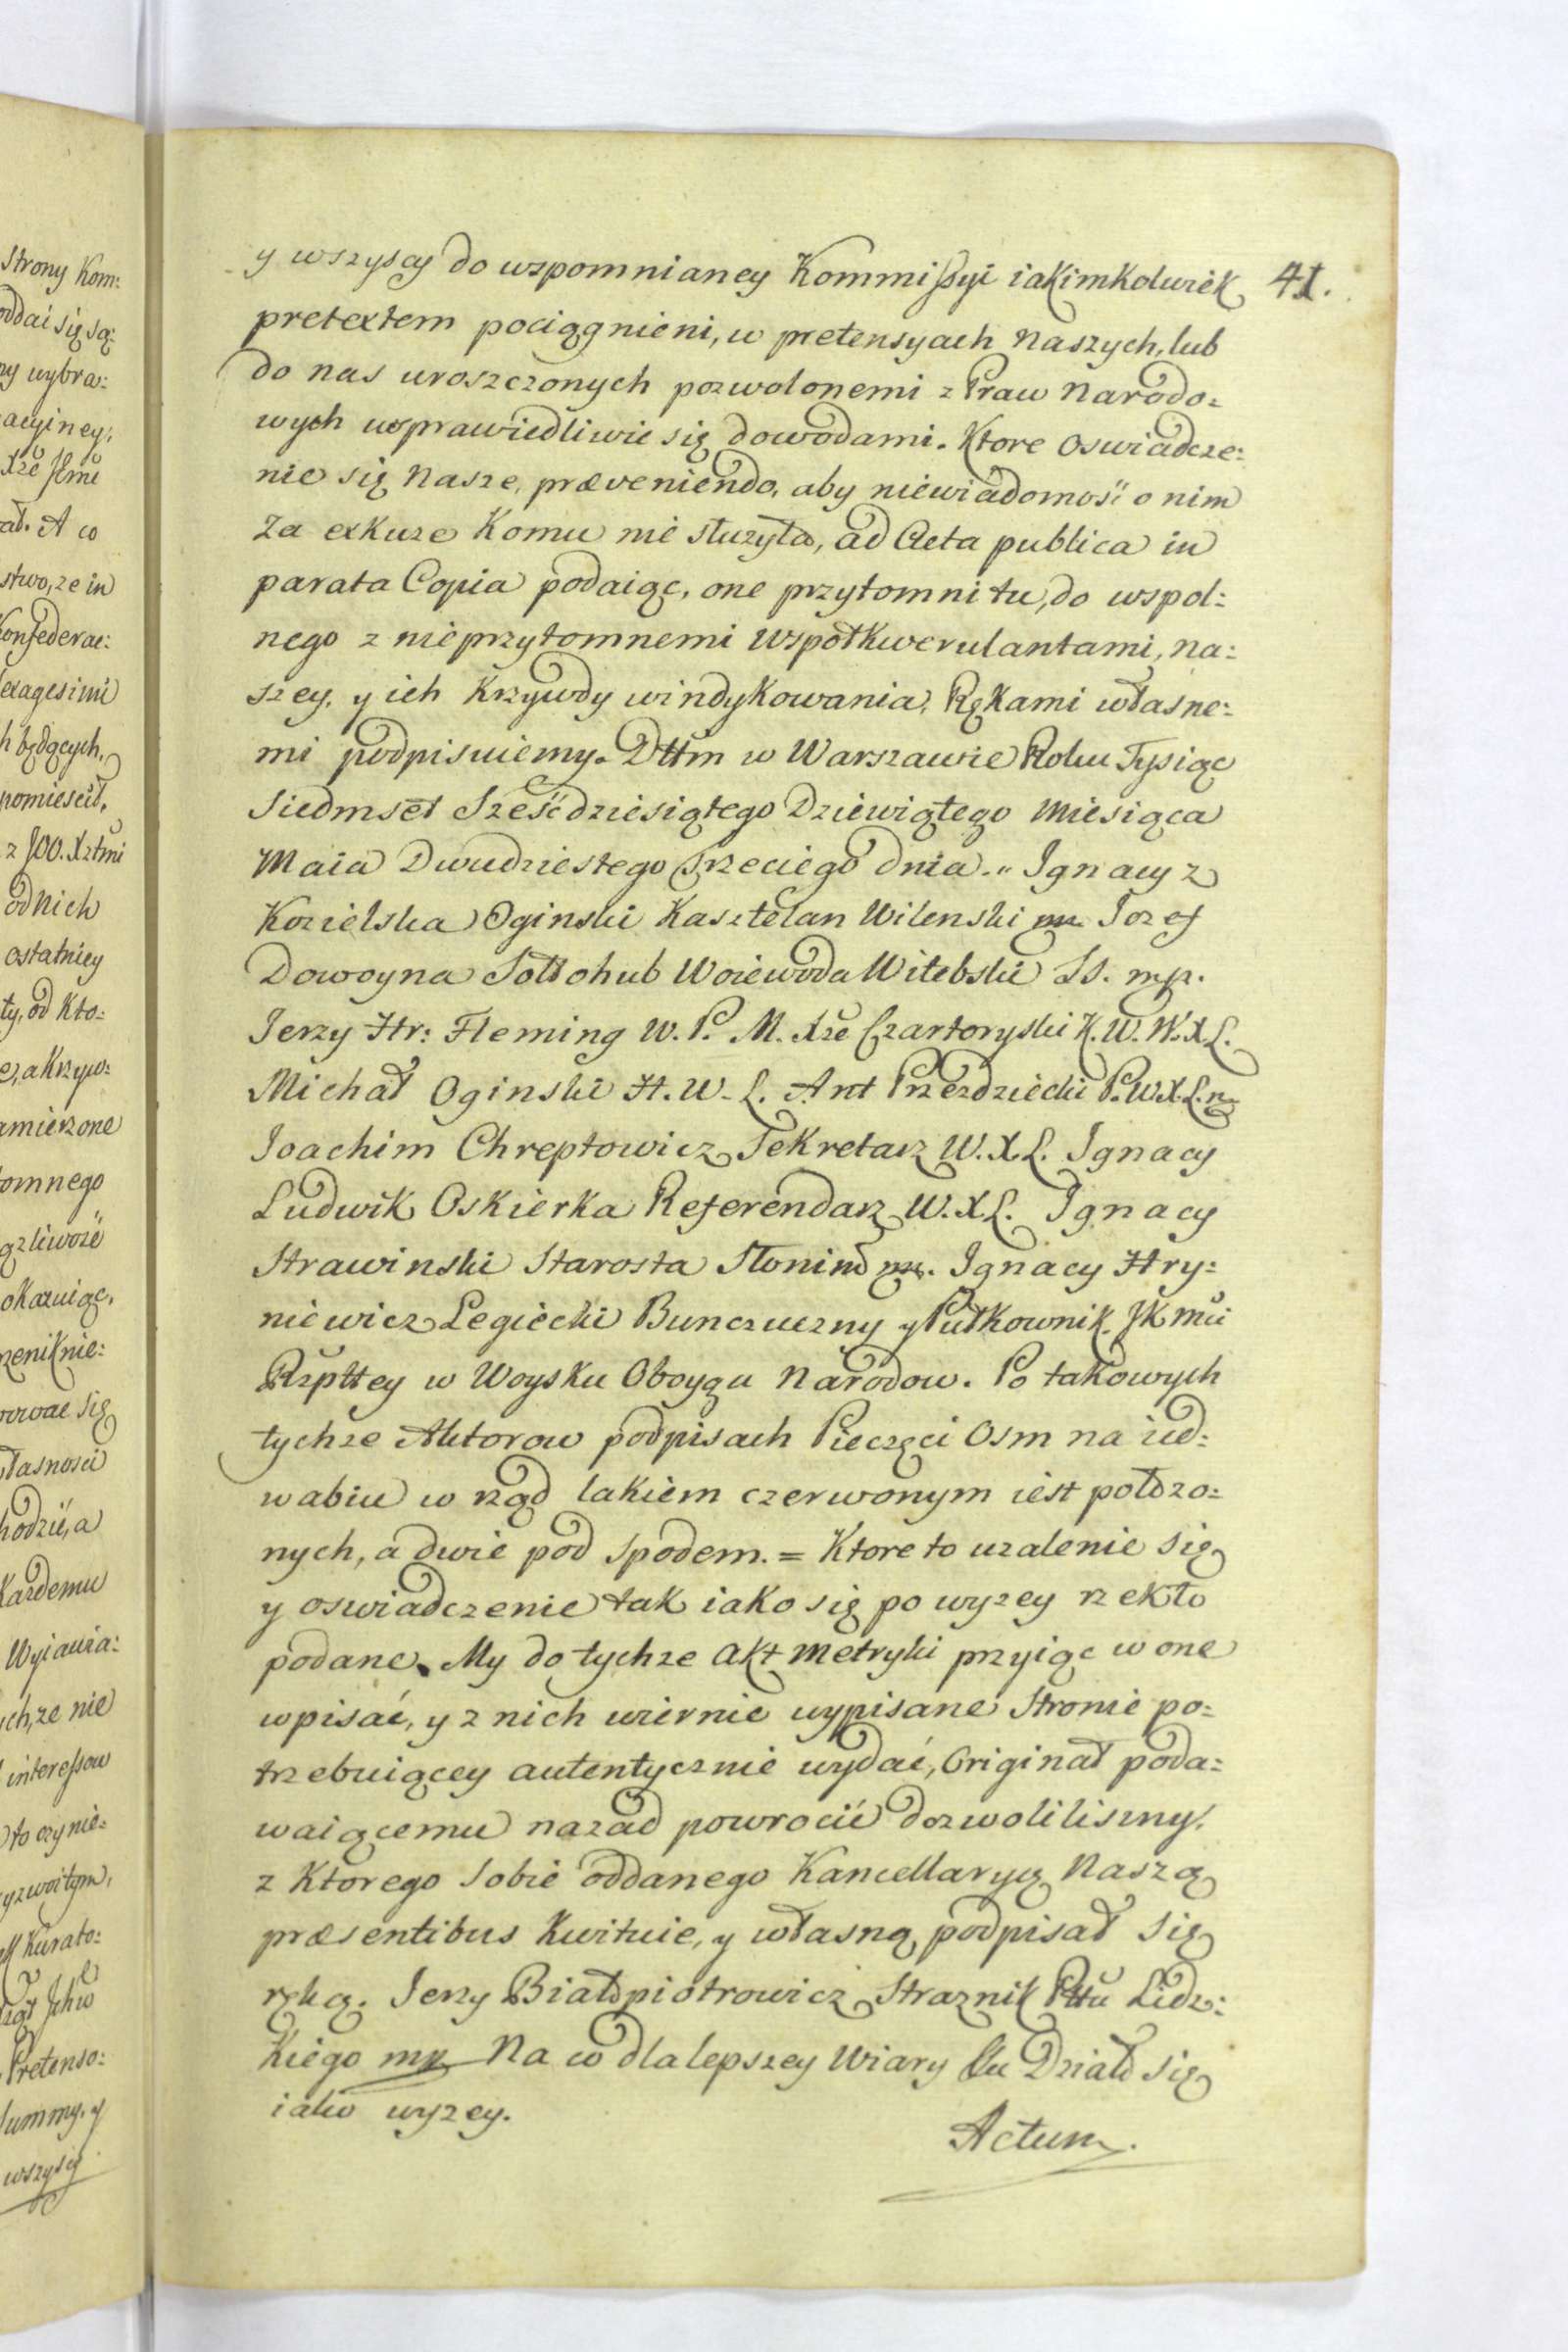 Strony Kom:
oddai się są:
ny wybra:
acyiney,
Xże Jemci
ał. A co
stwo, ze in
Konfederac:
exagesimi
h będących,
pomiescił,
z JOO. Xztmi
od Nich
ostatniey
ty, od Kto:
e, a Krzyw:
amierzone
omnego
okazuiąc,
rowac Się
własnosci
hodzić, a
Kazdemu
Wyiawia:
ch, ze nie
interessow
to czynie:
yzwoitym,
Kurato:
Pretenso:
Summy, y
wszyscy
y wszyscy do wspomnianey Kommissyi iakimkolwiek 41.
pretextem pociągnieni, w pretensyach Naszych, lub
do nas uroszczonych pozwolonemi z Praw Narodo:
wych usprawiedliwie się dowodami. Ktore Oswiadcze:
nie się Nasze, præveniendo, aby niewiadomość o nim
Za exkuze Komu nie służyła, ad Acta publica in
parata Copia podaiąc, one przytomni tu, do wspol:
nego z nieprzytomnemi Wspołkwerulantami, na:
szey, y ich Krzywdy windykowania, Rękami własne:
mi podpisuiemy. Dttm w Warszawie Roku Tysiąc
Siedmset Sześćdziesiątego Dziewiątego Miesiąca
Maia Dwudziestego Trzeciego dnia.„ Ignacy z
Kozielska Oginski Kasztelan Wilenski mp Jozef
Dowoyna Sołłohub Woiewoda Witebski SS. mp.
Jerzy Hr: Fleming W. P. M. Xże Czartoryski K. W. W. X. L.
Michał Oginski H. W. L. Ant Przezdziecki P. W X. L. m
Joachim Chreptowicz Sekretarz W. X. L. Ignacy
Ludwik Oskierka Referendarz W. X L. Ignacy
Strawinski Starosta Słonim mp. Ignacy Hry:
niewicz Legiecki Bunczuczny y Pułkownik JKMci
Rzpttey w Woysku Oboyga Narodow. Po takowych
tychze Aktorow podpisach Pieczęci Osm na ied:
wabiu w rząd lakiem czerwonym iest położo:
nych, a dwie pod Spodem. = Ktore to uzalenie Się
y oswiadczenie tak iako się po wyzey rzekło
podane. My do tychze Akt Metryki przyiąc w one
wpisać, y z nich wiernie wypisane Stronie po:
trzebuiącey autentycznie wydać, Originał poda:
waiącemu nazad powrocić dozwolilismy.
z Ktorego Sobie oddanego Kancellaryą Naszą
præsentibus Kwituie, y własną podpisał Się
ręką. Jerzy Białłopiotrowicz Straznik Pttu Lidz:
Kiego mp Na co dla lepszey Wiary &u Działo Się
iako wyzey.
Actum.